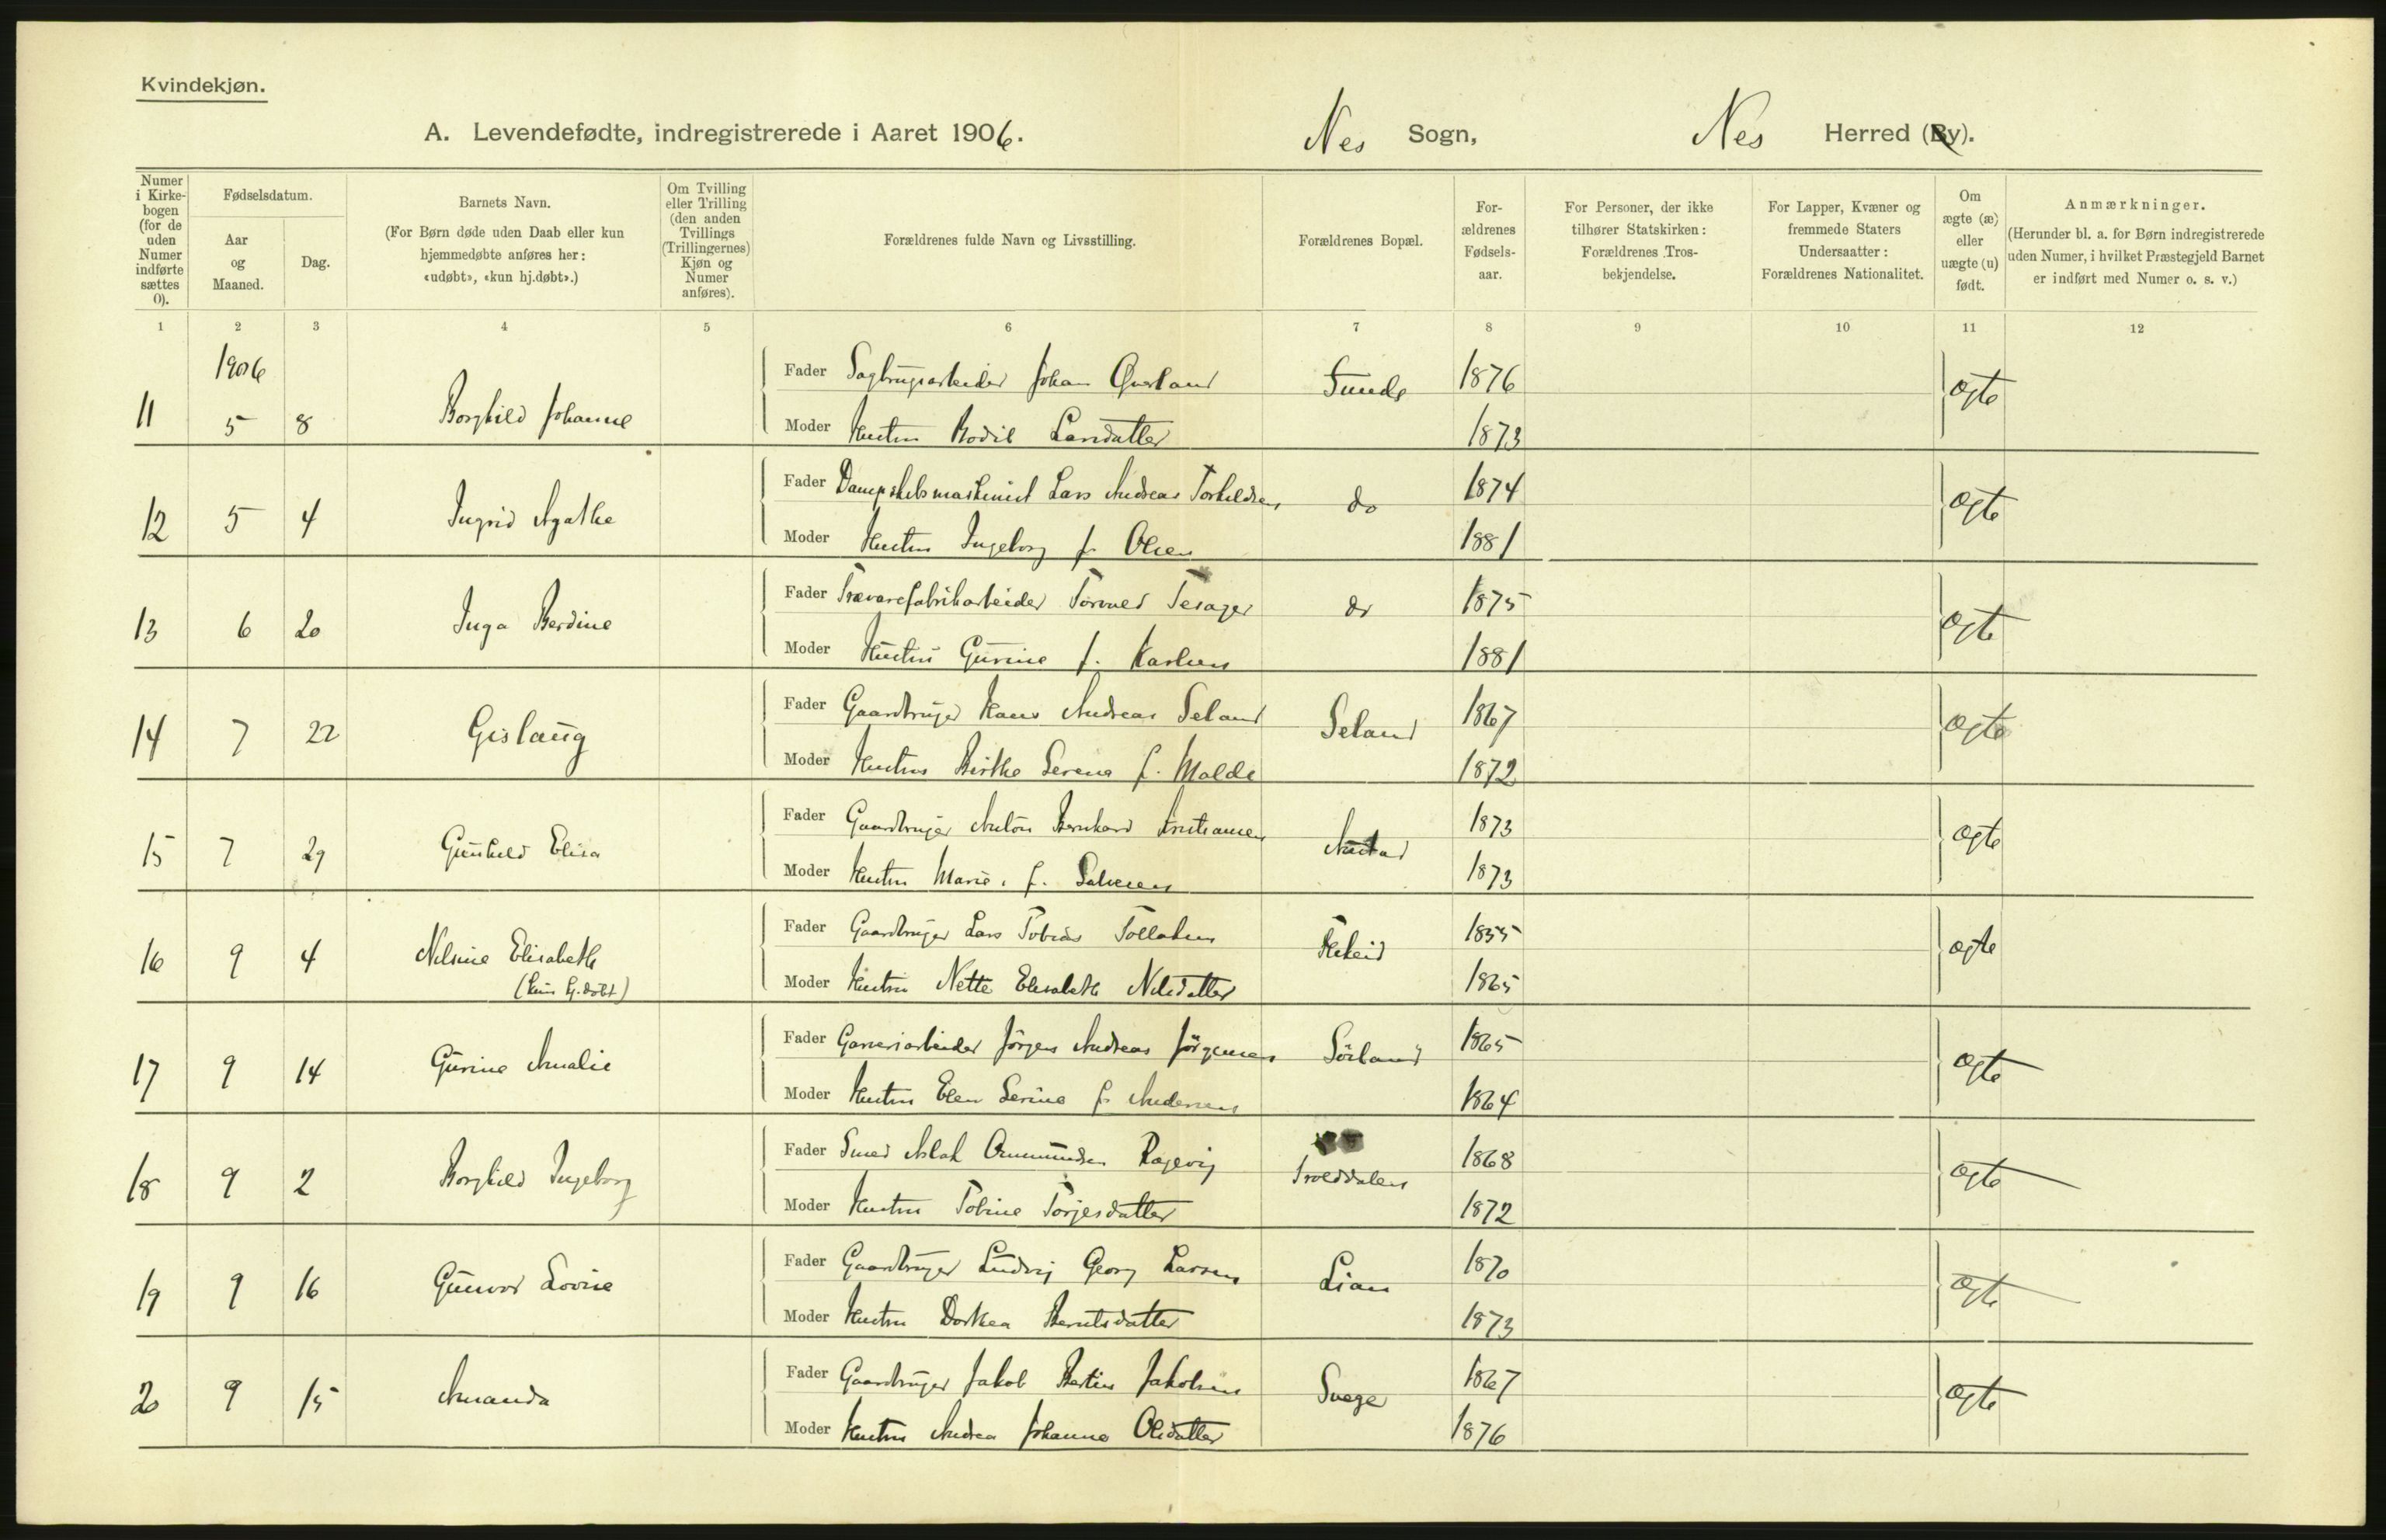 Kvindekjøn.
A. Levendefødte, indregistrerede i Aaret 1906.
Nes Sogn,
Nes Herred (By).
Numer i Kirkebogen (for de uden Numer indførte sættes 0).
Fødselsdatum.
Aar og Maaned.
Dag.
Barnets Navn.
(For Børn døde uden Daab eller kun hjemmedøbte anføres her: «udøbt», «kun hj.døbt».)
Om Tvilling eller Trilling (den anden Tvillings (Trillingernes) Kjøn og Numer anføres).
Forældrenes fulde Navn og Livsstilling.
Forældrenes Bopæl.
Forældrenes Fødselsaar.
For Personer, der ikke tilhører Statskirken: Forældrenes Trosbekjendelse.
For Lapper, Kvæner og fremmede Staters Undersaatter: Forældrenes Nationalitet.
Om ægte (æ) eller uægte (u) født.
Anmærkninger.
(Herunder bl. a. for Børn indregistrerede uden Numer, i hvilket Præstegjeld Barnet er indført med Numer o. s. v.)
1 2 3 4 5 6 7 8 9 10 11 12
1906
11 5 8 Borghild Johanne
Fader Sagbrugsarbeider Johan Øverland Sunde 1876 ægte
Moder Hustru Bodil Larsdatter 1873
12 5 4 Ingrid Agathe
Fader Dampskibsmaskinist Lars Andreas Torkildsen do 1874 ægte
Moder Hustru Ingeborg f. Olsen 1881
13 6 20 Inga Berdine
Fader Trævarefabrikarbeider Torvald Tesager do 1875 ægte
Moder Hustru Gurine f. Karlsen 1881
14 7 22 Gislaug
Fader Gaardbruger Hans Andreas Seland Seland 1867 ægte
Moder Hustru Birthe Serena f. Molde 1872
15 7 29 Gunhild Elisa
Fader Gaardbruger Anton Bernhard Kristiansen 1873 ægte
Moder Hustru Marie f. Salvesen 1873
16 9 4 Nilsine Elisabeth
(kun hj.døbt)
Fader Gaardbruger Lars Tobias Tollaksen 1855 ægte
Moder Hustru Nette Elisabeth Nilsdatter 1865
17 9 14 Gurine Amalie
Fader Garveriarbeider Jörgen Andreas Jörgensen Sörland 1865 ægte
Moder Hustru Elen Serine f. Andersen 1864
18 9 2 Borghild Ingeborg
Fader Smed Aslak Ommundsen Rægevig Trolddalen 1868 ægte
Moder Hustru Tobine Torjesdatter 1872
19 9 16 Gunvor Lovise
Fader Gaardbruger Ludvig Georg Larsen Lian 1870 ægte
Moder Hustru Dorthea Berntsdatter 1873
20 9 15 Amanda
Fader Gaardbruger Jakob Bertin Jakobsen Svege 1867 ægte
Moder Hustru Andrea Johanne Olsdatter 1876